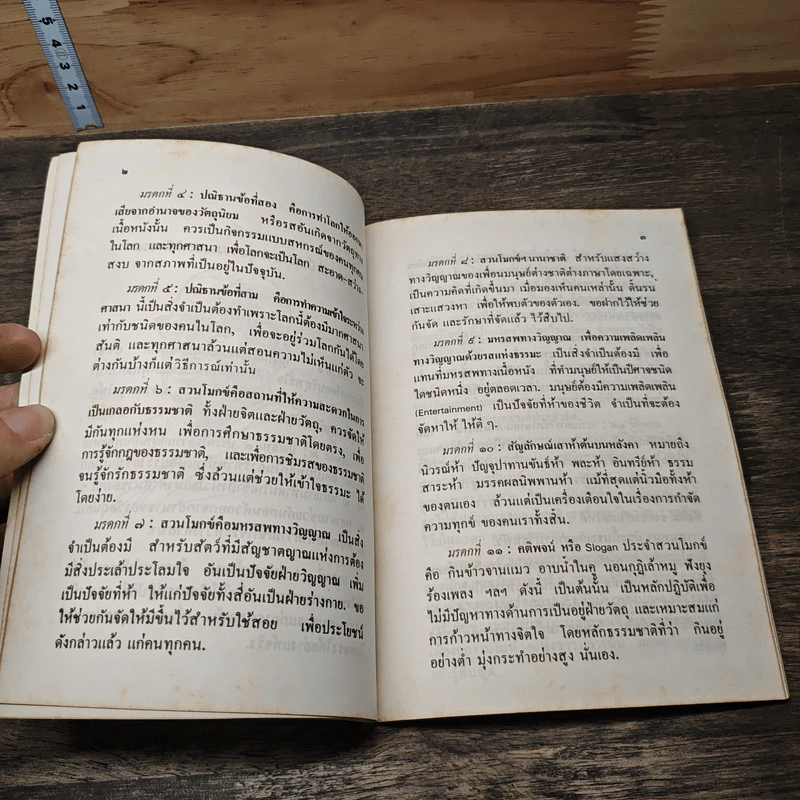 ๒
มรดกที่ ๔ : ปณิธานข้อที่สอง คือการทำโลกให้ออกมา
เสียจากอำนาจของวัตถุนิยม หรือรสอันเกิดจากวัตถุทาง
เนื้อหนังนั้น ควรเป็นกิจกรรมแบบสหกรณ์ของคนทุกคน
ในโลก และทุกศาสนา เพื่อโลกจะเป็นโลก สะอาด-สว่าง-
สงบ จากสภาพที่เป็นอยู่ในปัจจุบัน.
มรดกที่ ๕ : ปณิธานข้อที่สาม คือการทำความเข้าใจระหว่าง
ศาสนา นี้เป็นสิ่งจำเป็นต้องทำเพราะโลกนี้ต้องมีมากศาสนา
เท่ากับชนิดของคนในโลก, เพื่อจะอยู่ร่วมโลกกันได้โดย
สันติ และทุกศาสนาล้วนแต่สอนความไม่เห็นแก่ตัว จะ
ต่างกันบ้างก็แต่วิธีการณ์เท่านั้น
มรดกที่ ๖ : สวนโมกข์คือสถานที่ให้ความสะดวกในการ
เป็นเกลอกับธรรมชาติ ทั้งฝ่ายจิตและฝ่ายวัตถุ, ควรจัดให้
มีกันทุกแห่งหน เพื่อการศึกษาธรรมชาติโดยตรง, เพื่อ
การรู้จักกฎของธรรมชาติ, และเพื่อการชิมรสของธรรมชาติ
จนรู้จักรักธรรมชาติ ซึ่งล้วนแต่ช่วยให้เข้าใจธรรมะ ได้
โดยง่าย.
มรดกที่ ๗ : สวนโมกข์คือมหรสพทางวิญญาณ เป็นสิ่ง
จำเป็นต้องมี สำหรับสัตว์ที่มีสัญชาตญาณแห่งการต้อง
มีสิ่งประเล้าประโลมใจ อันเป็นปัจจัยฝ่ายวิญญาณ เพิ่ม
เป็นปัจจัยที่ห้า ให้แก่ปัจจัยทั้งสี่อันเป็นฝ่ายร่างกาย. ขอ
ให้ช่วยกันจัดให้มีขึ้นไว้สำหรับใช้สอย เพื่อประโยชน์
ดังกล่าวแล้ว แก่คนทุกคน.
๓
มรดกที่ ๘ : สวนโมกข์ฯ นานาชาติ สำหรับแสงสว่าง
ทางวิญญาณของเพื่อนมนุษย์ต่างชาติต่างภาษาโดยเฉพาะ,
เป็นความคิดที่เกิดขึ้นมา เมื่อมองเห็นคนเหล่านั้น ดิ้นรน
เสาะแสวงหา เพื่อให้พบตัวของตัวเอง. ขอฝากไว้ให้ช่วย
กันจัด และรักษาที่จัดแล้ว ไว้สืบไป.
มรดกที่ ๙ : มหรสพทางวิญญาณ เพื่อความเพลิดเพลิน
ทางวิญญาณด้วยรสแห่งธรรมะ เป็นสิ่งจำเป็นต้องมี เพื่อ
แทนที่มหรสพทางเนื้อหนัง ที่ทำมนุษย์ให้เป็นปีศาจชนิด
ใดชนิดหนึ่ง อยู่ตลอดเวลา. มนุษย์ต้องมีความเพลิดเพลิน
(Entertainment) เป็นปัจจัยที่ห้าของชีวิต จำเป็นที่จะต้อง
จัดหาให้ ให้ดี ๆ.
มรดกที่ ๑๐ : สัญลักษณ์เสาห้าต้นบนหลังคา หมายถึง
นิวรณ์ห้า ปัญจุปาทานขันธ์ห้า พละห้า อินทรีย์ห้า ธรรม
สาระห้า มรรคผลนิพพานห้า แม้ที่สุดแต่นิ้วมือทั้งห้า
ของตนเอง ล้วนแต่เป็นเครื่องเตือนใจในเรื่องการกำจัด
ความทุกข์ ของคนเราทั้งสิ้น.
มรดกที่ ๑๑ : คติพจน์ หรือ Slogan ประจำสวนโมกข์
คือ กินข้าวจานแมว อาบน้ำในคู นอนกุฏิเล้าหมู ฟังยุง
ร้องเพลง ฯลฯ ดังนี้ เป็นต้นนั้น เป็นหลักปฏิบัติเพื่อ
ไม่มีปัญหาทางด้านการเป็นอยู่ฝ่ายวัตถุ และเหมาะสมแก่
การก้าวหน้าทางจิตใจ โดยหลักธรรมชาติที่ว่า กินอยู่
อย่างต่ำ มุ่งกระทำอย่างสูง นั่นเอง.
5 4 3 2 1